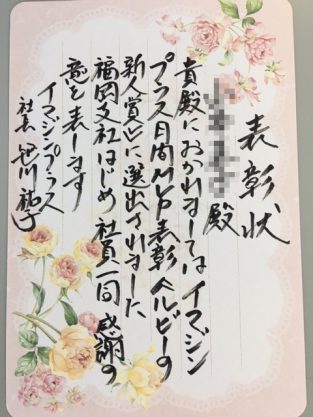 表彰状
殿
貴殿におかれましてはイマジン
プラス月間MVP表彰ベルビーの
新人賞に選出されました
福岡支社はじめ社員一同感謝の
意を表します
イマジンプラス
社長 笹川祐子